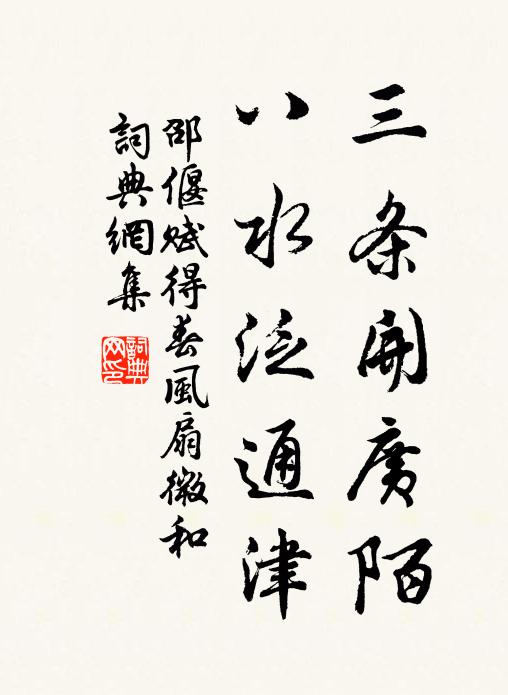 三条開廣陌
八水泛通津
邵偃赋得春風扇微和
詞典網集
詞典
网印